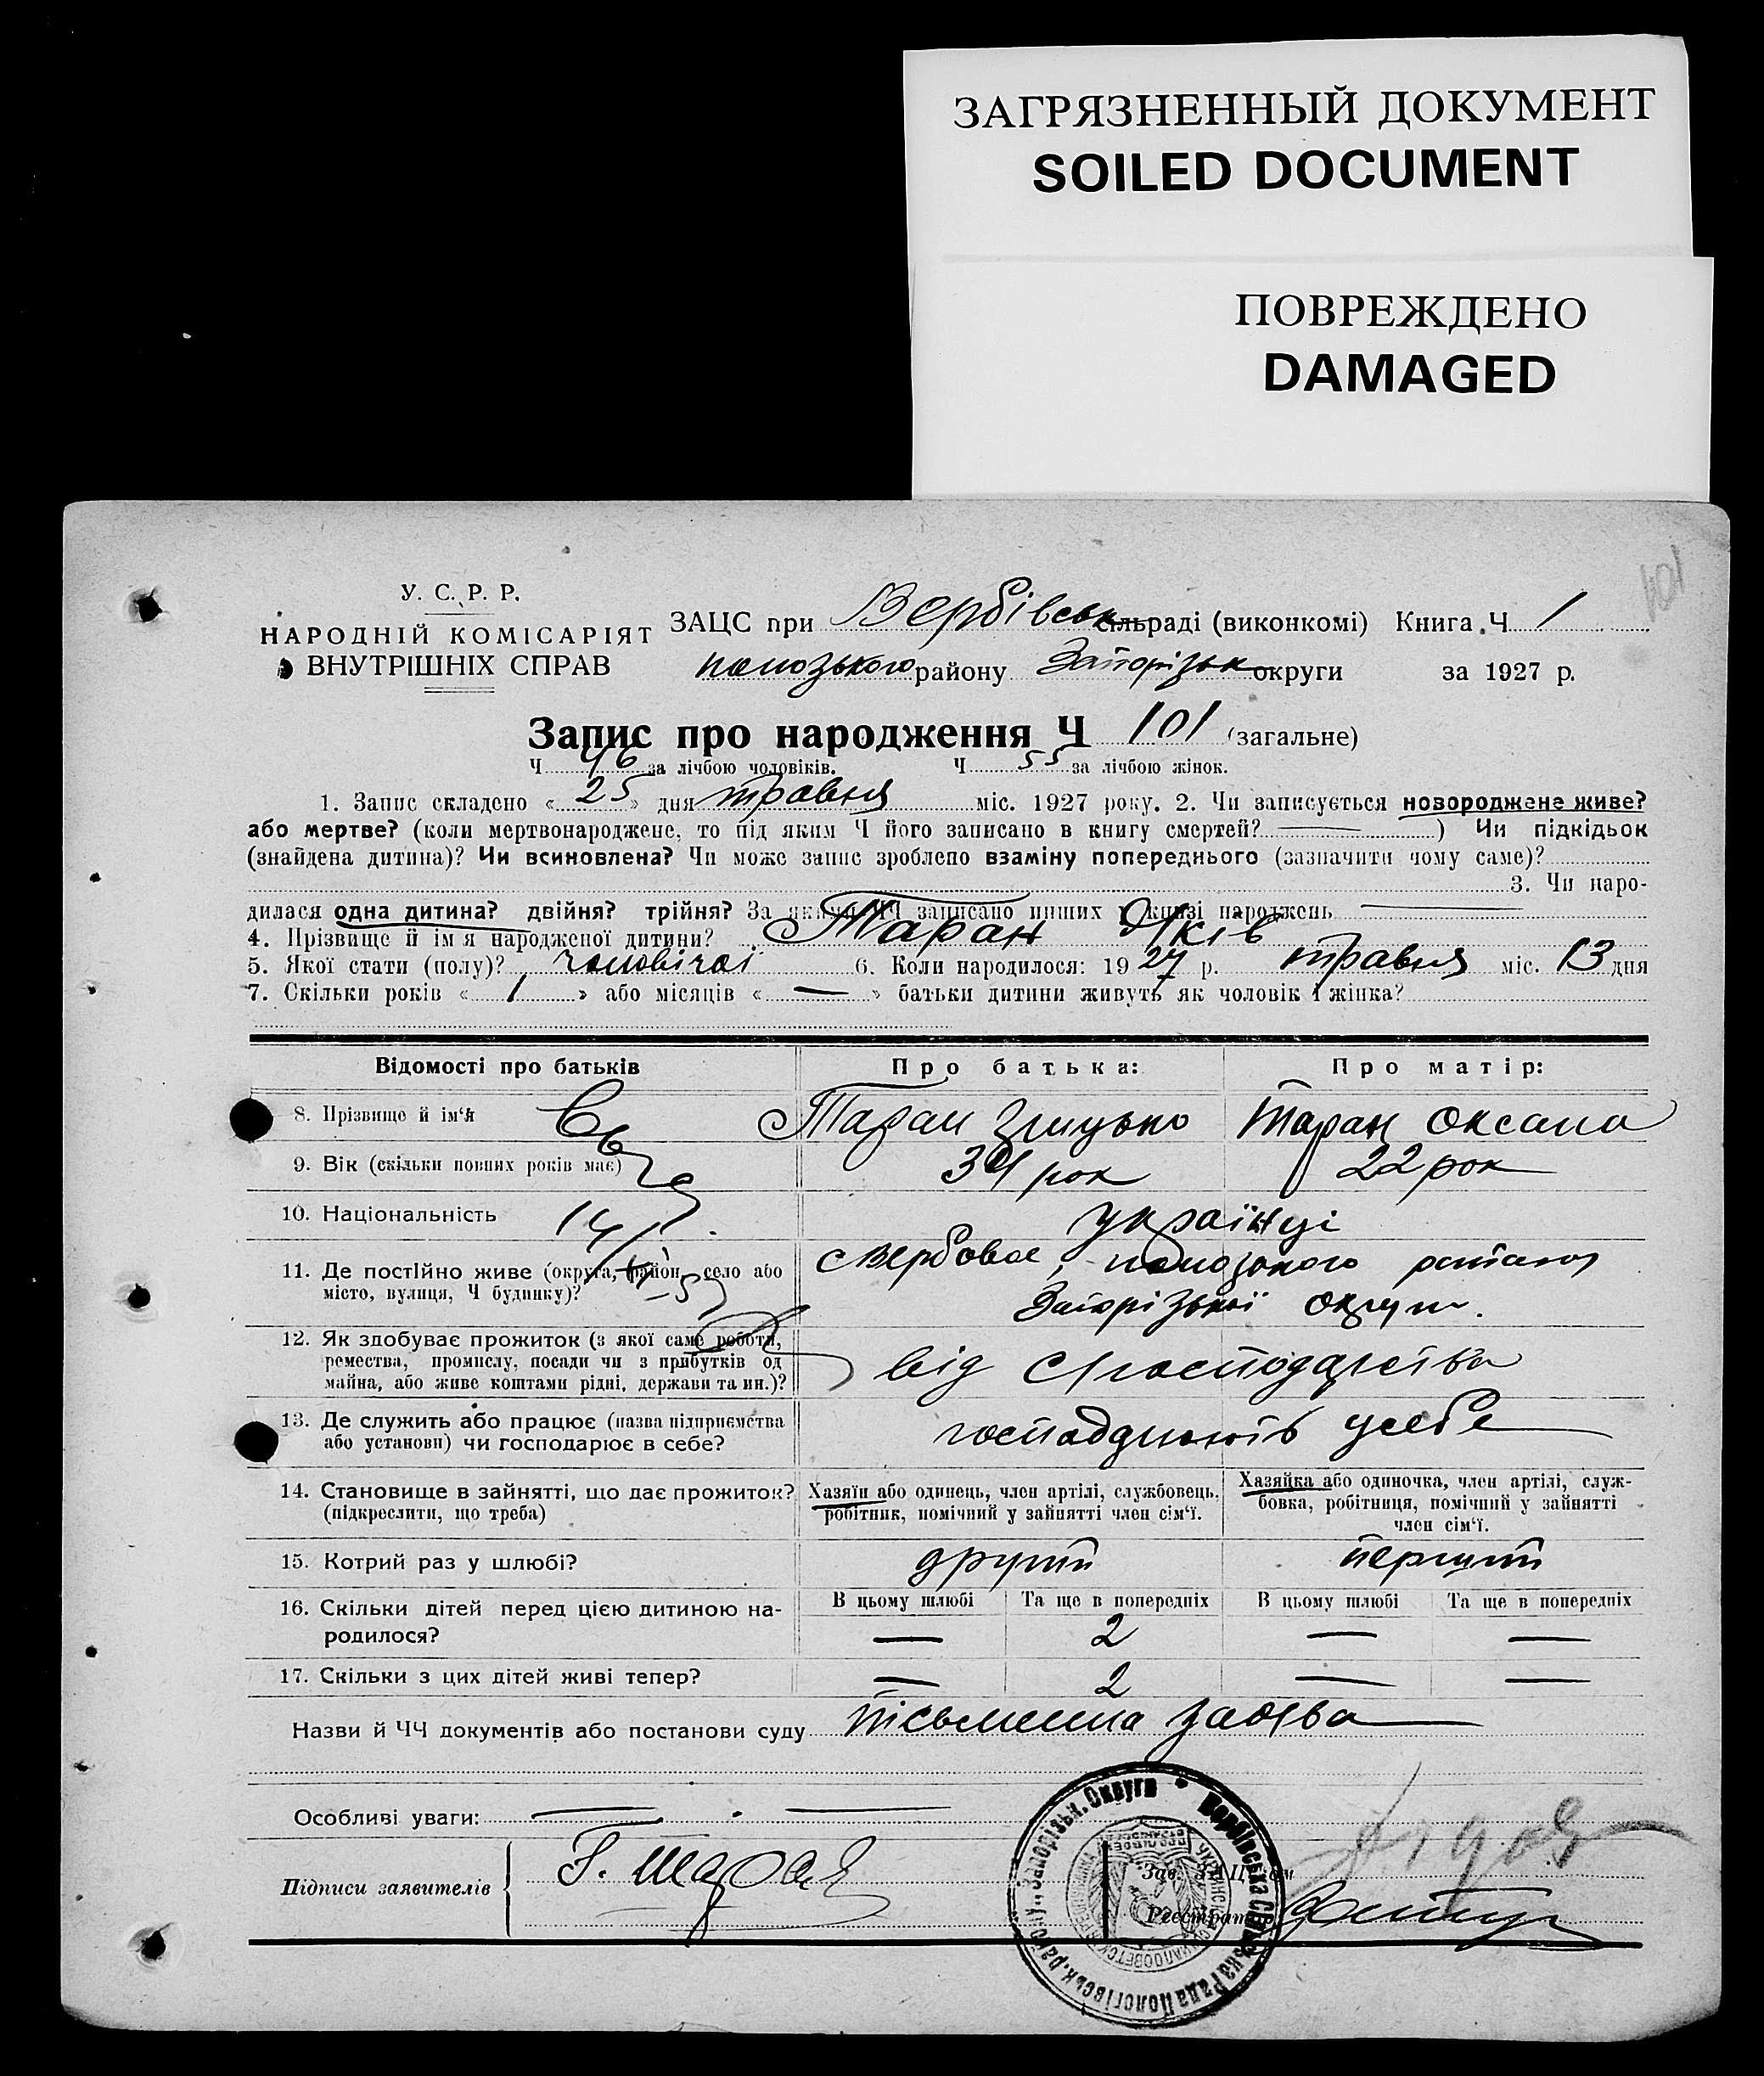 ЗАГРЯЗНЕННЫЙ ДОКУМЕНТ
SOILED DOCUMENT
ПОВРЕЖДЕНО
DAMAGED
101
У. С. Р. Р.
НАРОДНІЙ КОМІСАРІЯТ
ВНУТРІШНІХ СПРАВ
ЗАЦС при Вербівськ сільраді (виконкомі) Книга Ч 1
району Запорізьк округи за 1927 р.
Запис про народження Ч 101 (загальне)
Ч 46 за лічбою чоловіків. Ч 55 за лічбою жінок.
1. Запис складено « 25 » дня травня міс. 1927 року. 2. Чи записується новороджене живе?
або мертве? (коли мертвонароджене, то під яким Ч його записано в книгу смертей? — ) Чи підкідьок
(знайдена дитина)? Чи всиновлена? Чи може запис зроблено взаміну попереднього (зазначити чому саме)?
3. Чи наро-
дилася одна дитина? двійня? трійня? За якими ЧЧ записано инших у книзі народжень —
4. Прізвище й ім'я народженої дитини? Таран Яків
5. Якої стати (полу)? чоловічої 6. Коли народилося: 1927 р. травня міс. 13 дня
7. Скільки років « 1 » або місяців « — » батьки дитини живуть як чоловік і жінка?
Відомості про батьків Про батька: Про матір:
8. Прізвище й ім'я Таран Грицько Таран Оксана
9. Вік (скільки повних років має) рок 22 рок
10. Національність українці
11. Де постійно живе (округа, район, село або
місто, вулиця, Ч будинку)?
с Вербовое,
Запорізької округи.
12. Як здобуває прожиток (з якої саме роботи,
ремества, промислу, посади чи з прибутків од
майна, або живе коштами рідні, держави та ин.)?
від с господарства
13. Де служить або працює (назва підприємства
або установи) чи господарює в себе?
усебе
14. Становище в зайнятті, що дає прожиток?
(підкреслити, що треба)
Хазяїн або одинець, член артілі, службовець,
робітник, помічний у зайнятті член сім'ї.
Хазяйка або одиночка, член артілі, служ-
бовка, робітниця, помічний у зайнятті
член сім'ї.
15. Котрий раз у шлюбі? другий перший
16. Скільки дітей перед цією дитиною на-
родилося?
В цьому шлюбі Та ще в попередніх В цьому шлюбі Та ще в попередніх
— 2 — —
17. Скільки з цих дітей живі тепер? — 2 — —
Назви й ЧЧ документів або постанови суду письменна заява
Особливі уваги: — . —
Підписи заявителів Г. Таран
Зав. ЗАЦС'ом
Реєстратор
Вербівська Сільська Рада Пологівськ. району Запорізьк. Округи